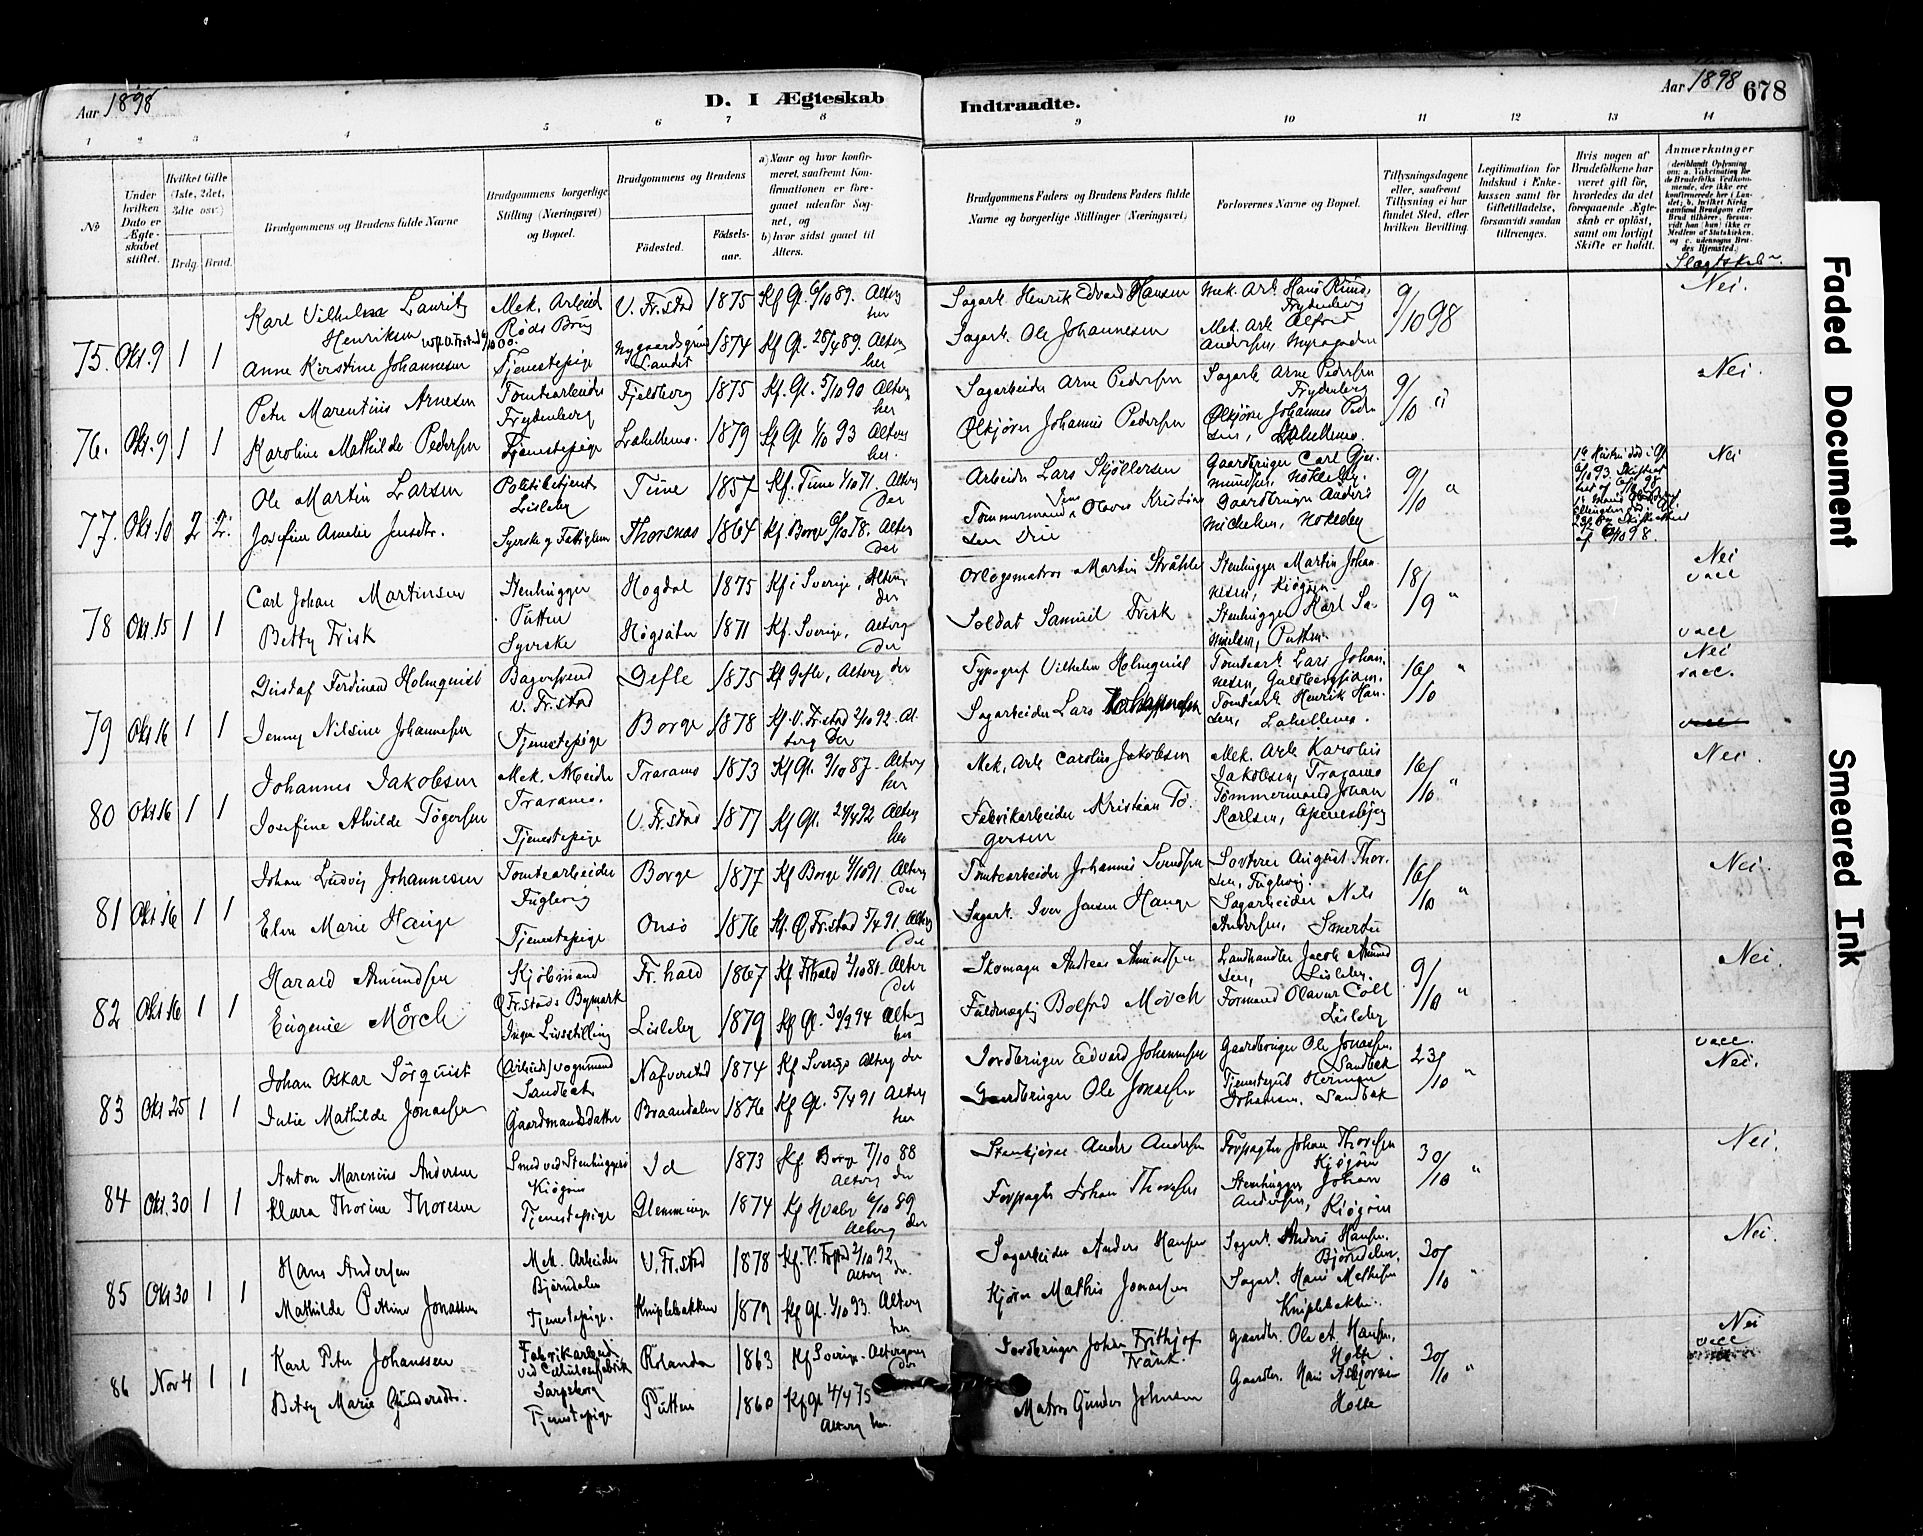 Aar 1898
D. I Ægteskab
Indtraadte.
Aar 1898 678
1 2 3 4 5 6 7 8 9 10 11 12 13 14
No
Under hvilken Dato er Ægteskabet stiftet.
Hvilket Gifte (1ste, 2det, 3die osv.)
Brdg. Brud.
Brudgommens og Brudens fulde Navne
Brudgommens borgerlige Stilling (Næringsvei) og Bopæl.
Brudgommens og Brudens
Fødested. Fødselsaar.
a) Naar og hvor konfirmeret, saafremt Konfirmationen er foregaaet udenfor Sognet, og
b) hvor sidst gaaet til Alters.
Brudgommens Faders og Brudens Faders fulde Navne og borgerlige Stillinger (Næringsvei).
Forlovernes Navne og Bopæl.
Tillysningsdagene eller, saafremt Tillysning ei har fundet Sted, efter hvilken Bevilling.
Legitimation for Indskud i Enkekassen samt for Giftetilladelse, forsaavidt saadan tiltrænges.
Hvis nogen af Brudefolkene har været gift før, hvorledes da det foregaaende Ægteskab er opløst, samt om lovligt Skifte er holdt.
Anmærkninger
75. Okt. 9 1 1
Karl Vilhelm Lauritz Henriksen
Mek. Arbeid
V. Fr.stad 1875 Kf Gl. 6/10 89. Alterg her
Sagarb. Henrik Edvard Hansen
9/10 98
Nei.
Anne Kirstine Johannesen
Tjenestepige
1874 Kf Gl. 28/4 89. Alterg her
Sagarb. Ole Johannesen
76. Okt. 9 1 1
Peter Marentius Arnesen
Tomtearbeider Frydenberg
Fjeldberg 1875 Kf. Gl. 5/10 90 Alterg her
Sagarbeider Arne Pedersen
Sagarb Arne Pedersen Frydenberg
9/10 "
Nei.
Karoline Mathilde Pedersen
Tjenestepige
Lahellemo. 1879 Kf Gl 1/10 93 Alterg her.
Ølkjører Johannes Pedersen
Ølkjører Johannes Pedersen, Lahellemo.
77. Okt. 10 2 2.
Ole Martin Larsen
Politibetjent Lisleby
Tune 1857 Kf. Tune 1/10 71. Alterg der
Arbeider Lars Skjøllersen
9/10 "
Nei
Josefine Amalie Jensdtr.
Thorsnæs 1864 Kf. Borge 6/10 78. Alterg der
78 Okt. 15 1 1
Carl Johan Martinsen
Stenhugger Putten
Hogdal 1875 Kf i Sverige, Alterg der
Orlogsmatros Martin Stråhle
Stenhugger Martin Johannesen, Kiøgøen
18/9 "
Nei
vacc
Betty Frisk
Syerske
Högsäter 1871 Kf. Sverige, Alterg der
Soldat Samuel Frisk
Stenhugger Karl Samuelsen, Putten
vacc
79 Okt 16 1 1
Gustaf Ferdinand Holmquist
Bagersvend V. Fr.stad
Gefle 1875 Kf Gefle, Alterg der
Typograf Vilhelm Holmquist
16/10 "
Nei
vacc.
Jenny Nilsine Johannesen
Tjenestepige
Borge 1878 Kf. V. Fr.stad 2/10 92. Alterg der
Sagarbeider Lars Johannesen
Tomtearb Henrik Hansen, Lahellemo.
vacc
80 Okt 16 1 1
Johannes Jakobsen
Mek. Arbeider Traramo.
Traramo 1873 Kf Gl. 9/10 87 - Alterg her
Mek. Arb Carolius Jakobsen
Mek. Arb Karolius Jakobsen, Traramo
16/10 "
Nei.
Josefine Alvilde Tögersen
Tjenestepige
V. Fr.stad 1877 Kf Gl. 24/4 92 Alterg her
Fabrikarbeider Kristian Tögersen
Tømmermand Johan Karlsen,
81 Okt. 16 1 1
Johan Ludvig Johannesen
Tomtearbeider Fuglevig
Borge 1877 Kf Borge 4/10 91. Alterg der
Tomtearbeider Johannes Svendsen
August Thorsen, Fuglevig.
16/10 "
Nei.
Elen Marie Hauge
Tjenestepige
Onsø 1876 Kf. Ø. Fr.stad 5/4 91. Alterg der
Sagarb. Iver Jensen Hauge
Sagarbeider Nils Andersen,
82 Okt. 16 1 1
Harald Amundsen
Kjøbmand Ø Fr.stads Bymark
Fr.hald 1867 Kf Frhald 2/10 81- Alterg der
Skomager Andreas Amundsen
Landhandler Jacob Amundsen, Lisleby.
9/10 "
Nei.
Eugenie Mörch
Ingen Livsstilling
Lisleby 1879 Kf Gl. 30/9 94 Alterg her
Fuldmægtig Bolfred Mörch
Formand Olavus Coll Lisleby
83 Okt 25 1 1
Johan Oskar Sörquist
(Arbeids)vognmand Sandbæk
Nafverstad 1874 Kf Sverige Alterg der
Jordbruger Edvard Johannesen
Gaardbruger Ole Jonassen, Sandbæk
23/10 "
vacc.
Nei.
Julie Mathilde Jonassen
Gaardmandsdatter
Braandalen 1876 Kf Gl. 5/4 91 Alterg her
Gaardbruger Ole Jonassen
Tjenestegut Herman Johansen, Sandbæk
84 Okt. 30 1 1
Anton Marenius Andersen
Smed ved Stenhuggeri Kiøgøen
Id 1873 Kf Borge 7/10 88 Alterg der
Stenkjører Anders Andersen
Forpagter Johan Thoresen Kjøgøen
30/10 "
Nei.
Klara Thorine Thoresen
Tjenestepige
Glemminge 1874 Kf Hvaler 6/10 89 Alterg der
Forpagter Johan Thoresen
Stenhugger Johan Andersen, Kiøgøen
85 Okt 30 1 1
Hans Andersen
Mek. Arbeider Bjørndalen
V. Fr.stad 1878 Kf. V. Frstad 2/10 92. Alterg der.
Sagarbeider Anders Hansen
Sagarb. Anders Hansen, Bjørndalen.
30/10 "
Nei.
Mathilde Petrine Jonassen
Tjenestepige.
Kniplebakken 1879 Kf Gl. 1/10 93. Alterg her
Kjører Mathis Jonassen
Sagarb. Hans Mathisen Kniplebakken.
86 Nov 4 1 1
Karl Peter Johanssen
Fabrikarbeid. ved Cellulosefabrik Sarpsborg
Rolanda 1863 Kf Sverige. Altergang der
Jordbruger Johan Frithjof Frank.
Gaardbr. Ole A. Hansen, Holte
30/10 "
Nei
vacc
Betsy Marie Gundersdtr.
Tjenestepige
Putten 1860 Kf Gl 4/4 75 Alterg her.
Matros Gunder Johnsen
Gaardbr. Hans Asbjørnsen Holte
Faded Document
Smeared Ink